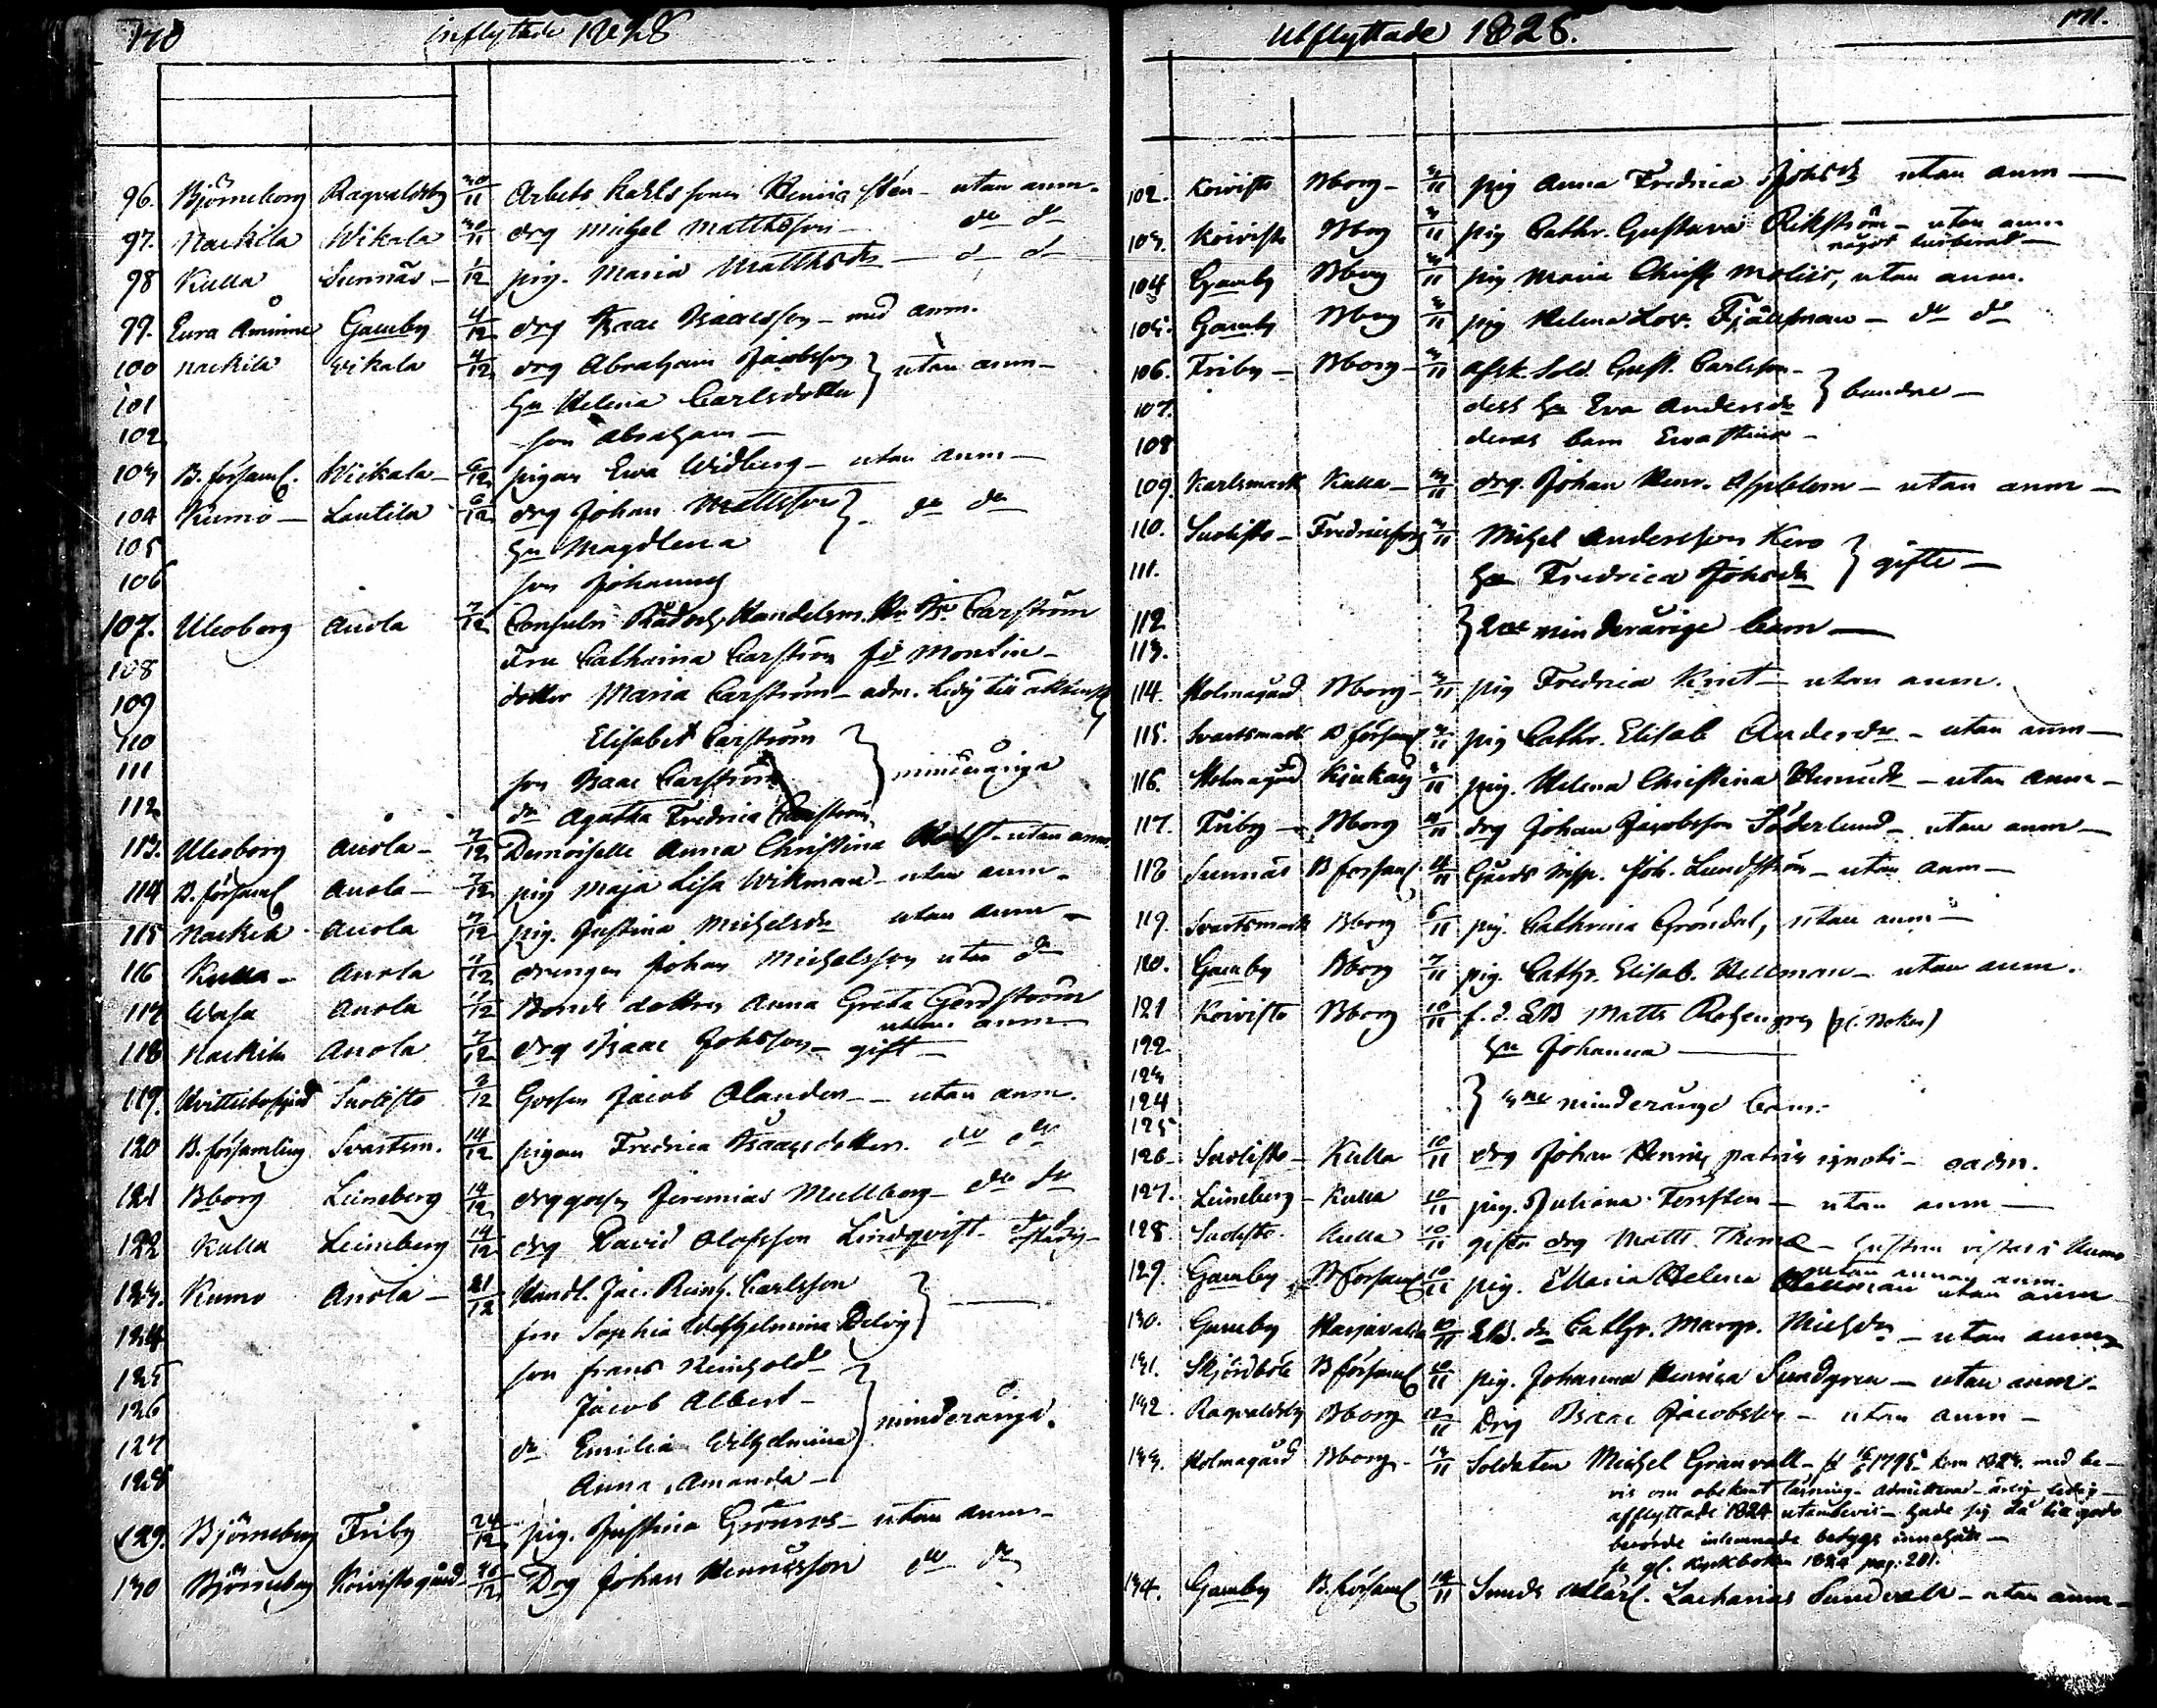 170 Inflyttade 1828
96. Björneborg Ragvaldsby 30/11 Arbets Karls sonen Henric Sten - utan anm.
97. Nackila Wikala 30/11 drg Michel Matthsson - do do
98 Kulla Sunnäs - 1/12 pig. Maria Matthsdr - do do
99. Eura Åminne Gamby 4/12 drg Isaac Isaacsson - med anm.
100 Nackila Wikala 4/12 drg Abraham Jacobsson } utan anm -
101 hu Helena Carlsdotter
102 son Abraham -
103 B. församl. Wickala - 6/12 pigan Ewa Widberg - utan anm -
104 Kumo - Lautila 6/12 drg Johan Mattsson } - do do
105 hu Magdlena
106 son Johannes
107. Uleoborg Anola 7/12 Consuln Rådsh. Handelsm. Hr Is. Carström
108 Fru Catharina Carström fö Montin -
109 dotter Maria Carström - adm. ledig till äktensk
110 Elisabet Carström
111 son Isaac Carström } minderåriga
112 dr Agatha Fredrica Carström
113. Uleoborg Anola - 7/12 Demoiselle Anna Christina utan anm.
114 B. församl Anola - 7/12 pig Maja Lisa Wikman - utan anm -
115 Nackila Anola 7/12 pig. Justina Michelsdr utan anm -
116 Kulla - Anola 7/12 drengen Johan Michelsson utan do
117 Wasa Anola 7/12 Bonde dottren Anna Greta Gerdström
utan anm
118 Nackila Anola 7/12 drg Isaac Johsson - gift -
119. Suolisto 2/12 Gossen Jacob Olander - utan anm.
120 B. församling Svartsm. 14/12 pigan Fredrica Isaacsdotter. do do
121 Bborg Leineberg 14/12 drg gossn Jeremias Mullberg - do do
122 Kulla Leineberg 14/12 drg David Olofsson Lindqvist -
123. Kumo Anola - 21/12 Handl. Jac. Reinh. Carlsson }
124 fru Sophia Wilhelmina Delvig
125 son Frans Reinhold
126 Jacob Albert - } minderåriga.
127 dr Emilia Wilhelmina
128 Anna Amanda -
129. Björneborg Friby 24/12 pig. Justina Grönroos - utan anm -
130 Björneborg Koivistogård 26/12 Drg Johan Henricsson do do
Utflyttade 1828. 171.
102. Koivisto Bborg - 3/11 pig Anna Fredrica Johsdr utan anm -
103. Koivisto Bborg 3/11 pig Cathr. Gustava Rikström - utan anm
något
104 Gamby Bborg 3/11 pig Maria Christ. Molier, utan anm.
105. Gamby Bborg 3/11 pig Helena Lov. Fjällman - do do
106. Friby - Bborg - 3/11 afsk. Sold. Gust. Carlsson -
107. dess hu Eva Andersdr } bundne -
108 deras barn Eva Stina -
109. Karlsmark Kulla - 3/11 drg. Johan Henr. Applblom - utan anm -
110. Suolisto - Fredricsfors 3/11 Michel Andersson Kero
111. hu Fredrica Johsdr } gifte -
112 } 2ne minderårige barn -
113.
114. Holmagård Bborg - 3/11 pig Fredrica Kint - utan anm.
115. Svartsmark B församl 3/11 pig Cathr. Elisab Andersdr - utan anm -
116. Holmagård Kjukais 3/11 pig. Helena Christina Henricdr - utan anm -
117. Friby - Bborg 4/11 drg Johan Jacobsson Söderlund - utan anm -
118 Sunnäs B församl 4/11 Gårds Insp. Joh. Lundström - utan anm -
119. Svartsmark Bborg 6/11 pig. Cathrina Gröndal, utan anm -
120. Gamby Bborg 7/11 pig. Cathr. Elisab. Hellman - utan anm.
121 Koivisto Bborg 10/11 f. d. EB Matts Rosengren
122 hu Johanna -
123
124 } 3ne minderårige barn.
125
126 - Suolisto - Kulla 10/11 drg Johan Henric patris ignoti - oadm.
127. Leineberg - Kulla 10/11 pig. Juliana Forssten - utan anm -
128. Suolisto. Kulla 10/11 gifta drg Matts Thomæ - hustrun vistas i Kumo
utan annan anm.
129. Gamby B församl 10/11 pig. Maria Helena Hellman utan anm
130. Gamby Harjavalta 10/11 dr Cathr. Margr. Michsdr - utan anm
131. Skjördböle B församl 10/11 pig. Johanna Henrica Sundgren - utan anm -
132. Ragvaldsby Bborg 12/11 Drg Isaac Jacobsson - utan anm -
133. Holmagård Bborg - 13/11 Soldaten Michel Granvall - fd 16/6 1795 kom 1823. med be-
vis om obekant läsning - admitterad - ärlig ledig -
afflyttade 1824 utan bevis -
se gl. Kyrkboken pag. 281.
134. Gamby B. församl 14/11 Zacharias Sundvall - utan anm -